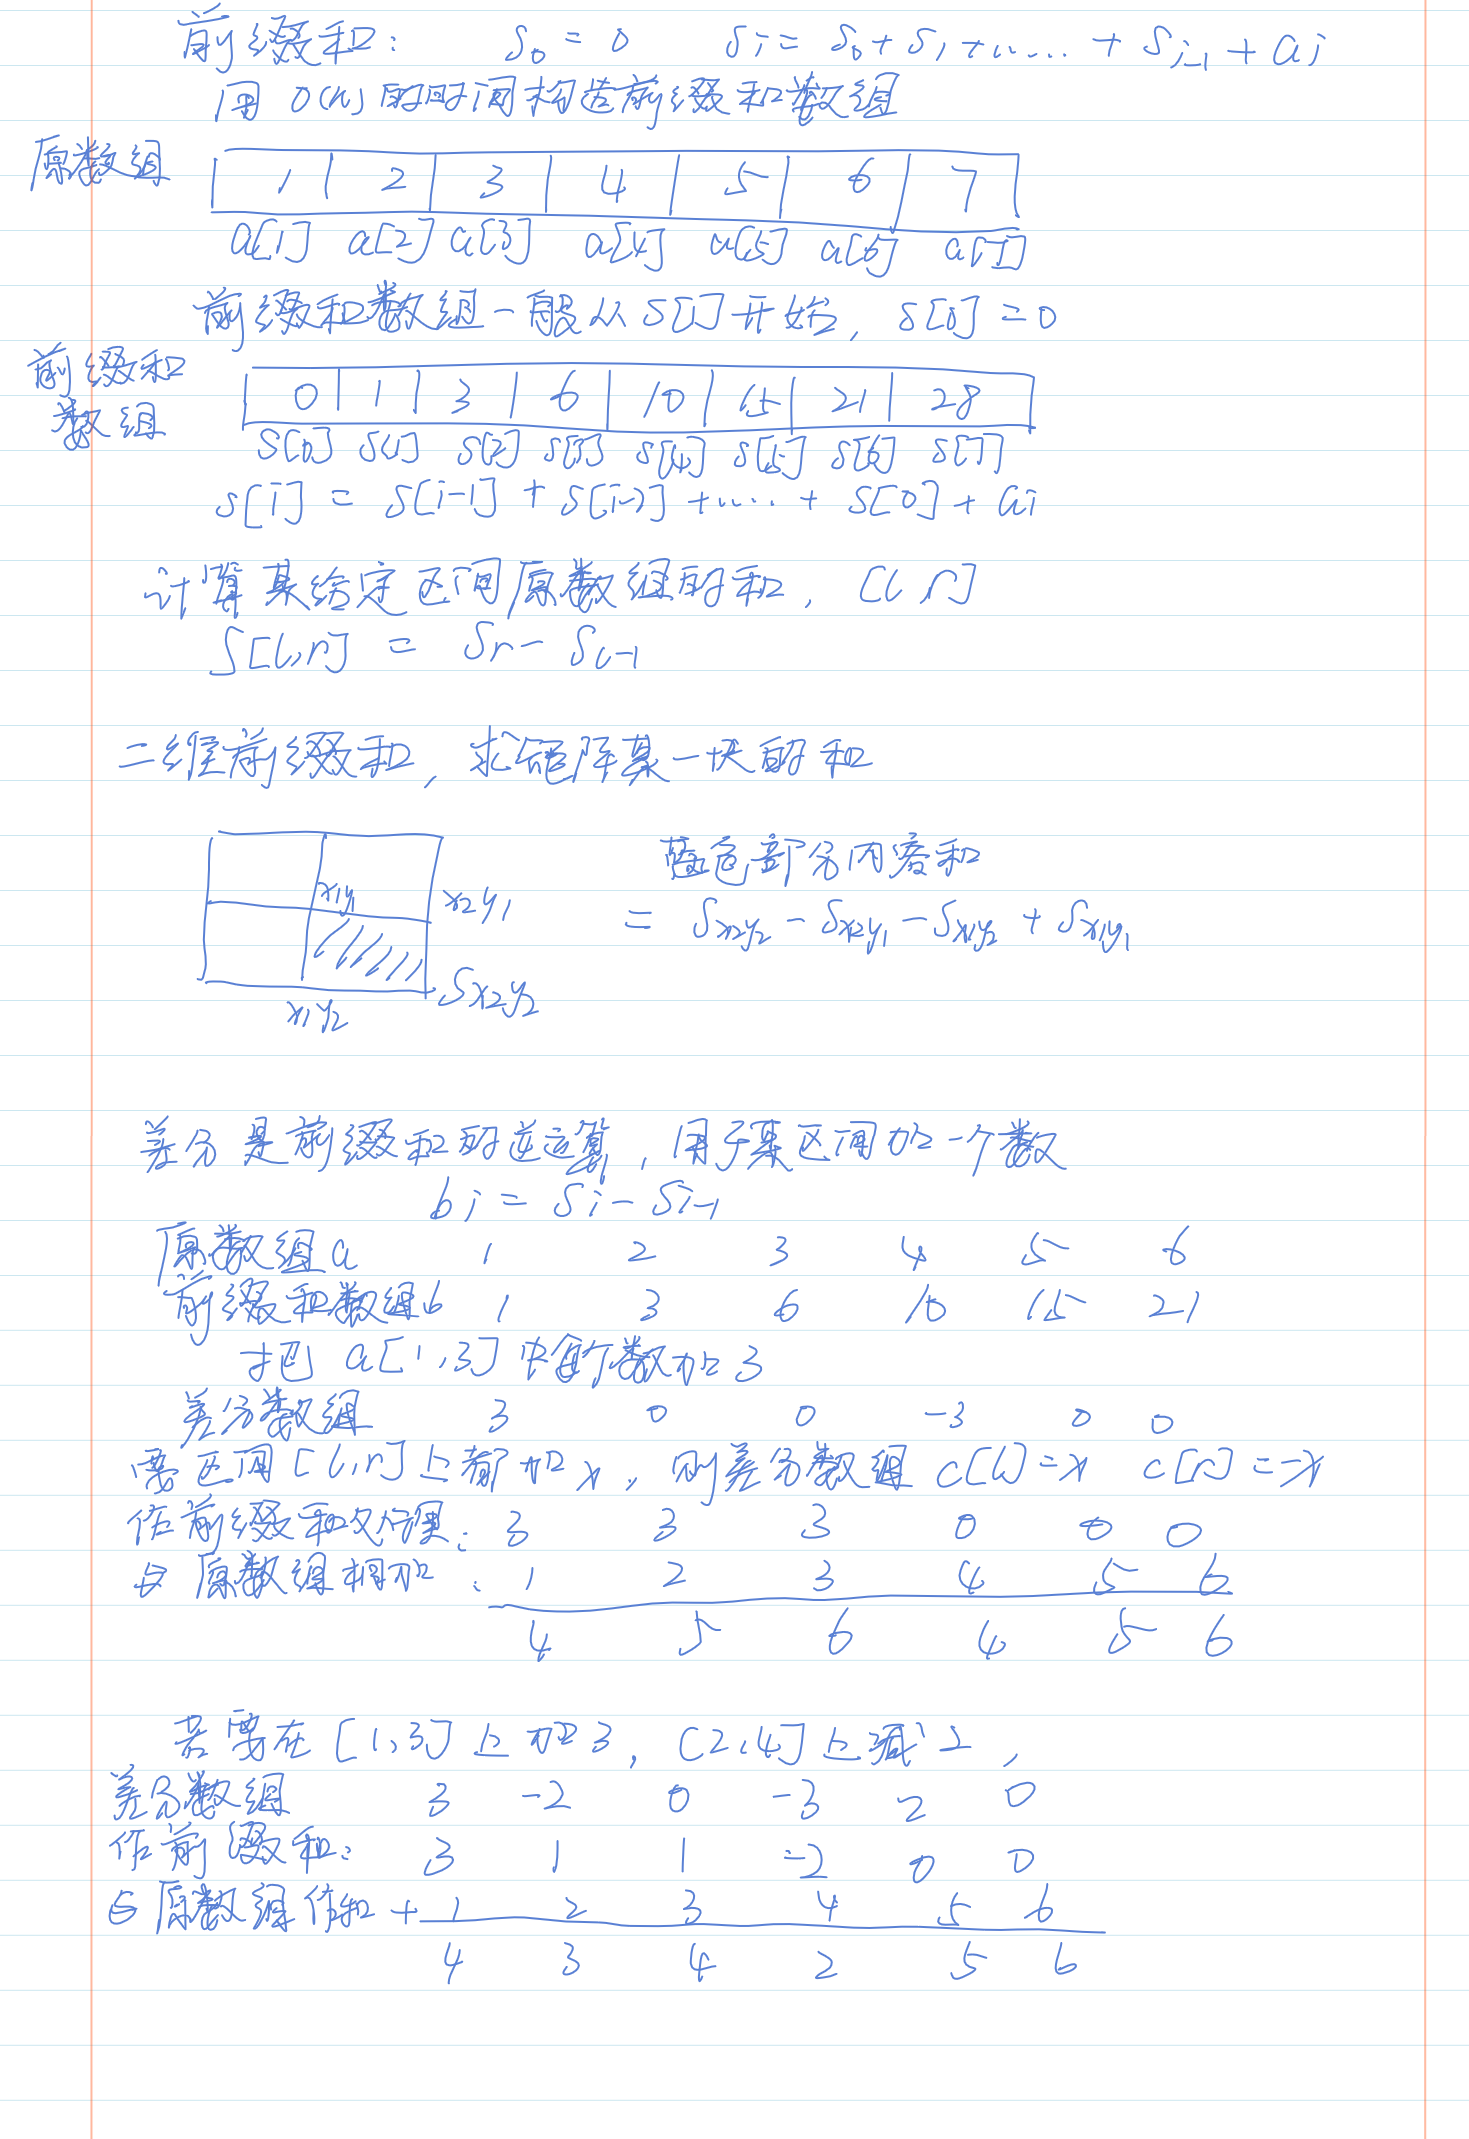 前缀和： S₀ = 0 Sᵢ = S₀ + S₁ + ...... + Sᵢ₋₁ + aᵢ
用 O(n) 的时间构造前缀和数组
原数组 1 2 3 4 5 6 7
a[1] a[2] a[3] a[4] a[5] a[6] a[7]
前缀和数组一般从 S[1] 开始, S[0] = 0
前缀和
数组 0 1 3 6 10 15 21 28
S[0] S[1] S[2] S[3] S[4] S[5] S[6] S[7]
S[i] = S[i-1] + S[i-2] + ..... + S[0] + ai
计算某给定区间原数组的和, [l, r]
S[l,r] = Sr - Sl-1
二维前缀和, 求矩阵某一块的和
蓝色部分内容和
= Sx2y2 - Sx2y1 - Sx1y2 + Sx1y1
x1y1 x2y1
Sx2y2
x1y2
差分是前缀和的逆运算, 用于某区间加一个数
bi = Si - Si-1
原数组a 1 2 3 4 5 6
前缀和数组b 1 3 6 10 15 21
把 a[1,3] 中每个数加 3
差分数组 3 0 0 -3 0 0
需区间 [l,r] 上都加 x, 则差分数组 c[l] = x c[r] = -x
作前缀和处理: 3 3 3 0 0 0
与原数组相加: 1 2 3 4 5 6
4 5 6 4 5 6
若需在 [1,3] 上加 3, [2,4] 上减 2,
差分数组 3 -2 0 -3 2 0
作前缀和: 3 1 1 -2 0 0
与原数组作和 + 1 2 3 4 5 6
4 3 4 2 5 6